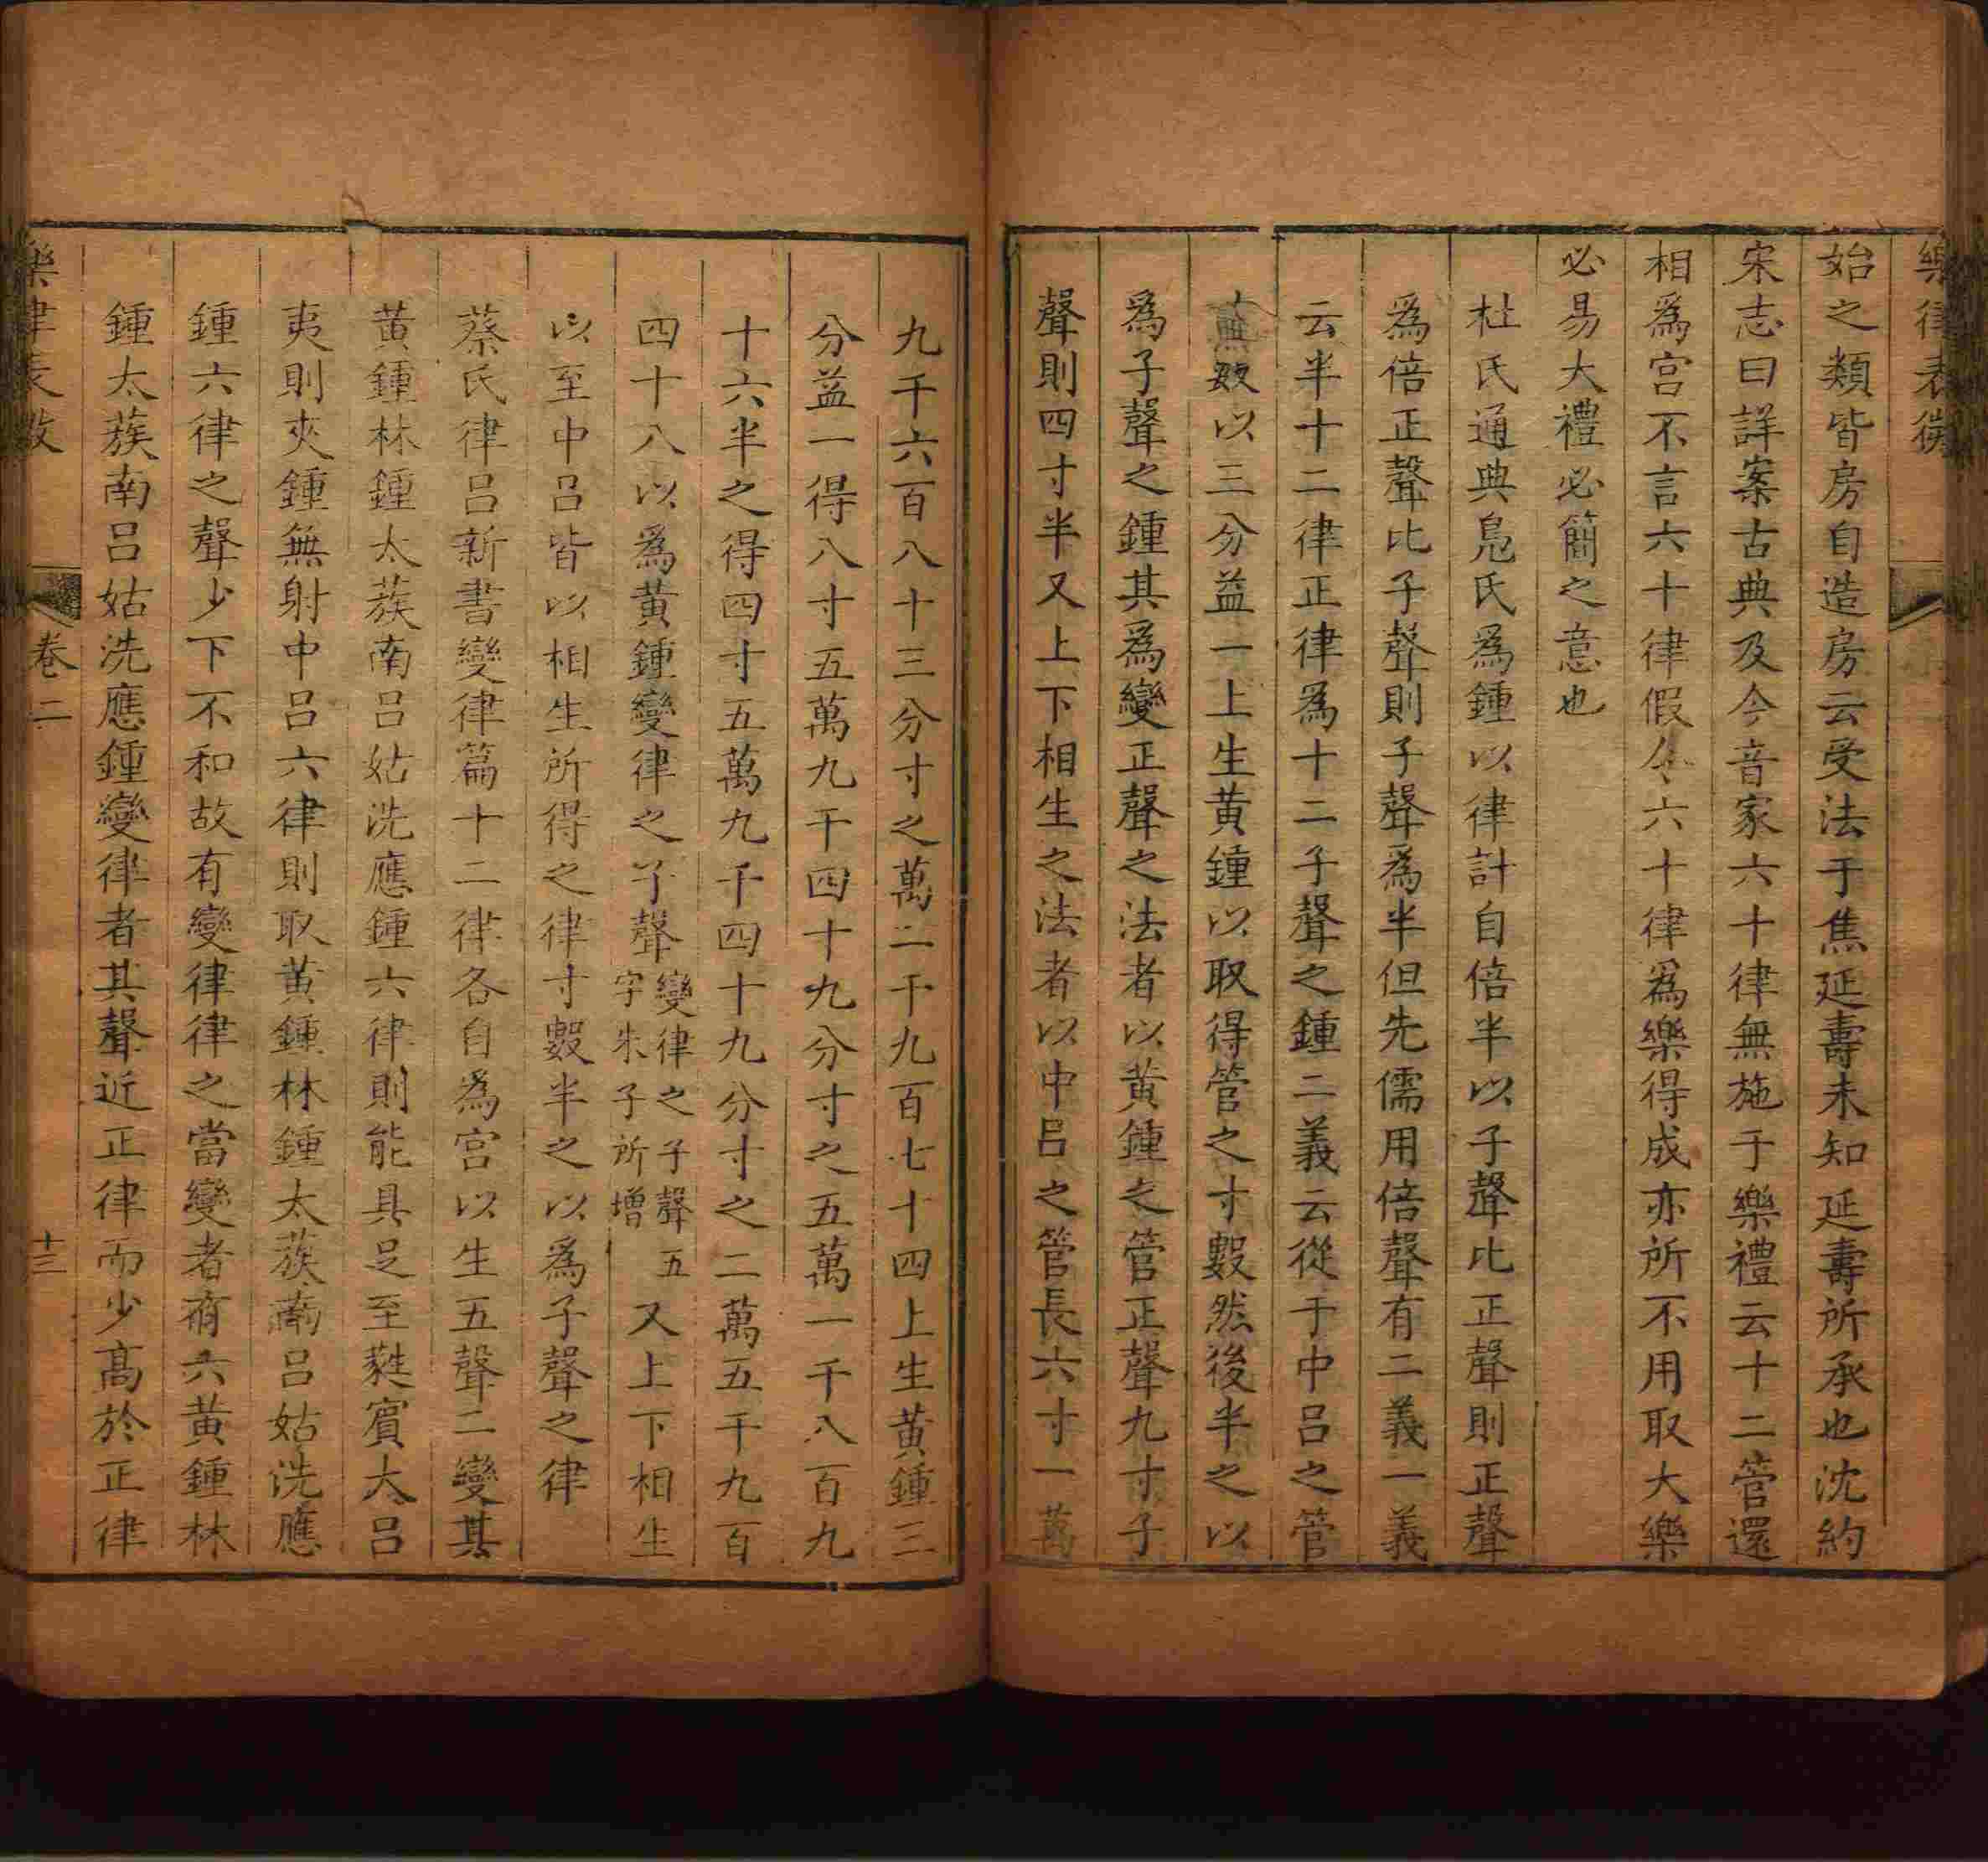 樂律表微
始之類皆房自造房云受法于焦延壽未知延壽所承也沈約
宋志曰詳案古典及今音家六十律無施于樂禮云十二管還
相爲宮不言六十律假令六十律爲樂得成亦所不用取大樂
必易大禮必簡之意也
杜氏通典鳧氏爲鍾以律計自倍半以子聲比正聲則正聲
爲倍正聲比子聲則子聲爲半但先儒用倍聲有二義一義
云半十二律正律爲十二子聲之鍾二義云從于中呂之管
以三分益一上生黃鍾以取得管之寸數然後半之以
爲子聲之鍾其爲變正聲之法者以黃鍾之管正聲九寸子
聲則四寸半又上下相生之法者以中呂之管長六寸一萬
九千六百八十三分寸之萬二千九百七十四上生黃鍾三
分益一得八寸五萬九千四十九分寸之五萬一千八百九
十六半之得四寸五萬九千四十九分寸之二萬五千九百
四十八以爲黃鍾變律之子聲變律之子聲五字朱子所增又上下相生
以至中呂皆以相生所得之律寸數半之以爲子聲之律
蔡氏律呂新書變律篇十二律各自爲宮以生五聲二變其
黃鍾林鍾太蔟南呂姑洗應鍾六律則能具足至蕤賓大呂
夷則夾鍾無射中呂六律則取黃鍾林鍾太蔟南呂姑洗應
鍾六律之聲少下不和故有變律律之當變者有六黃鍾林
鍾太蔟南呂姑洗應鍾變律者其聲近正律而少高於正律
樂律表微
卷二
十三